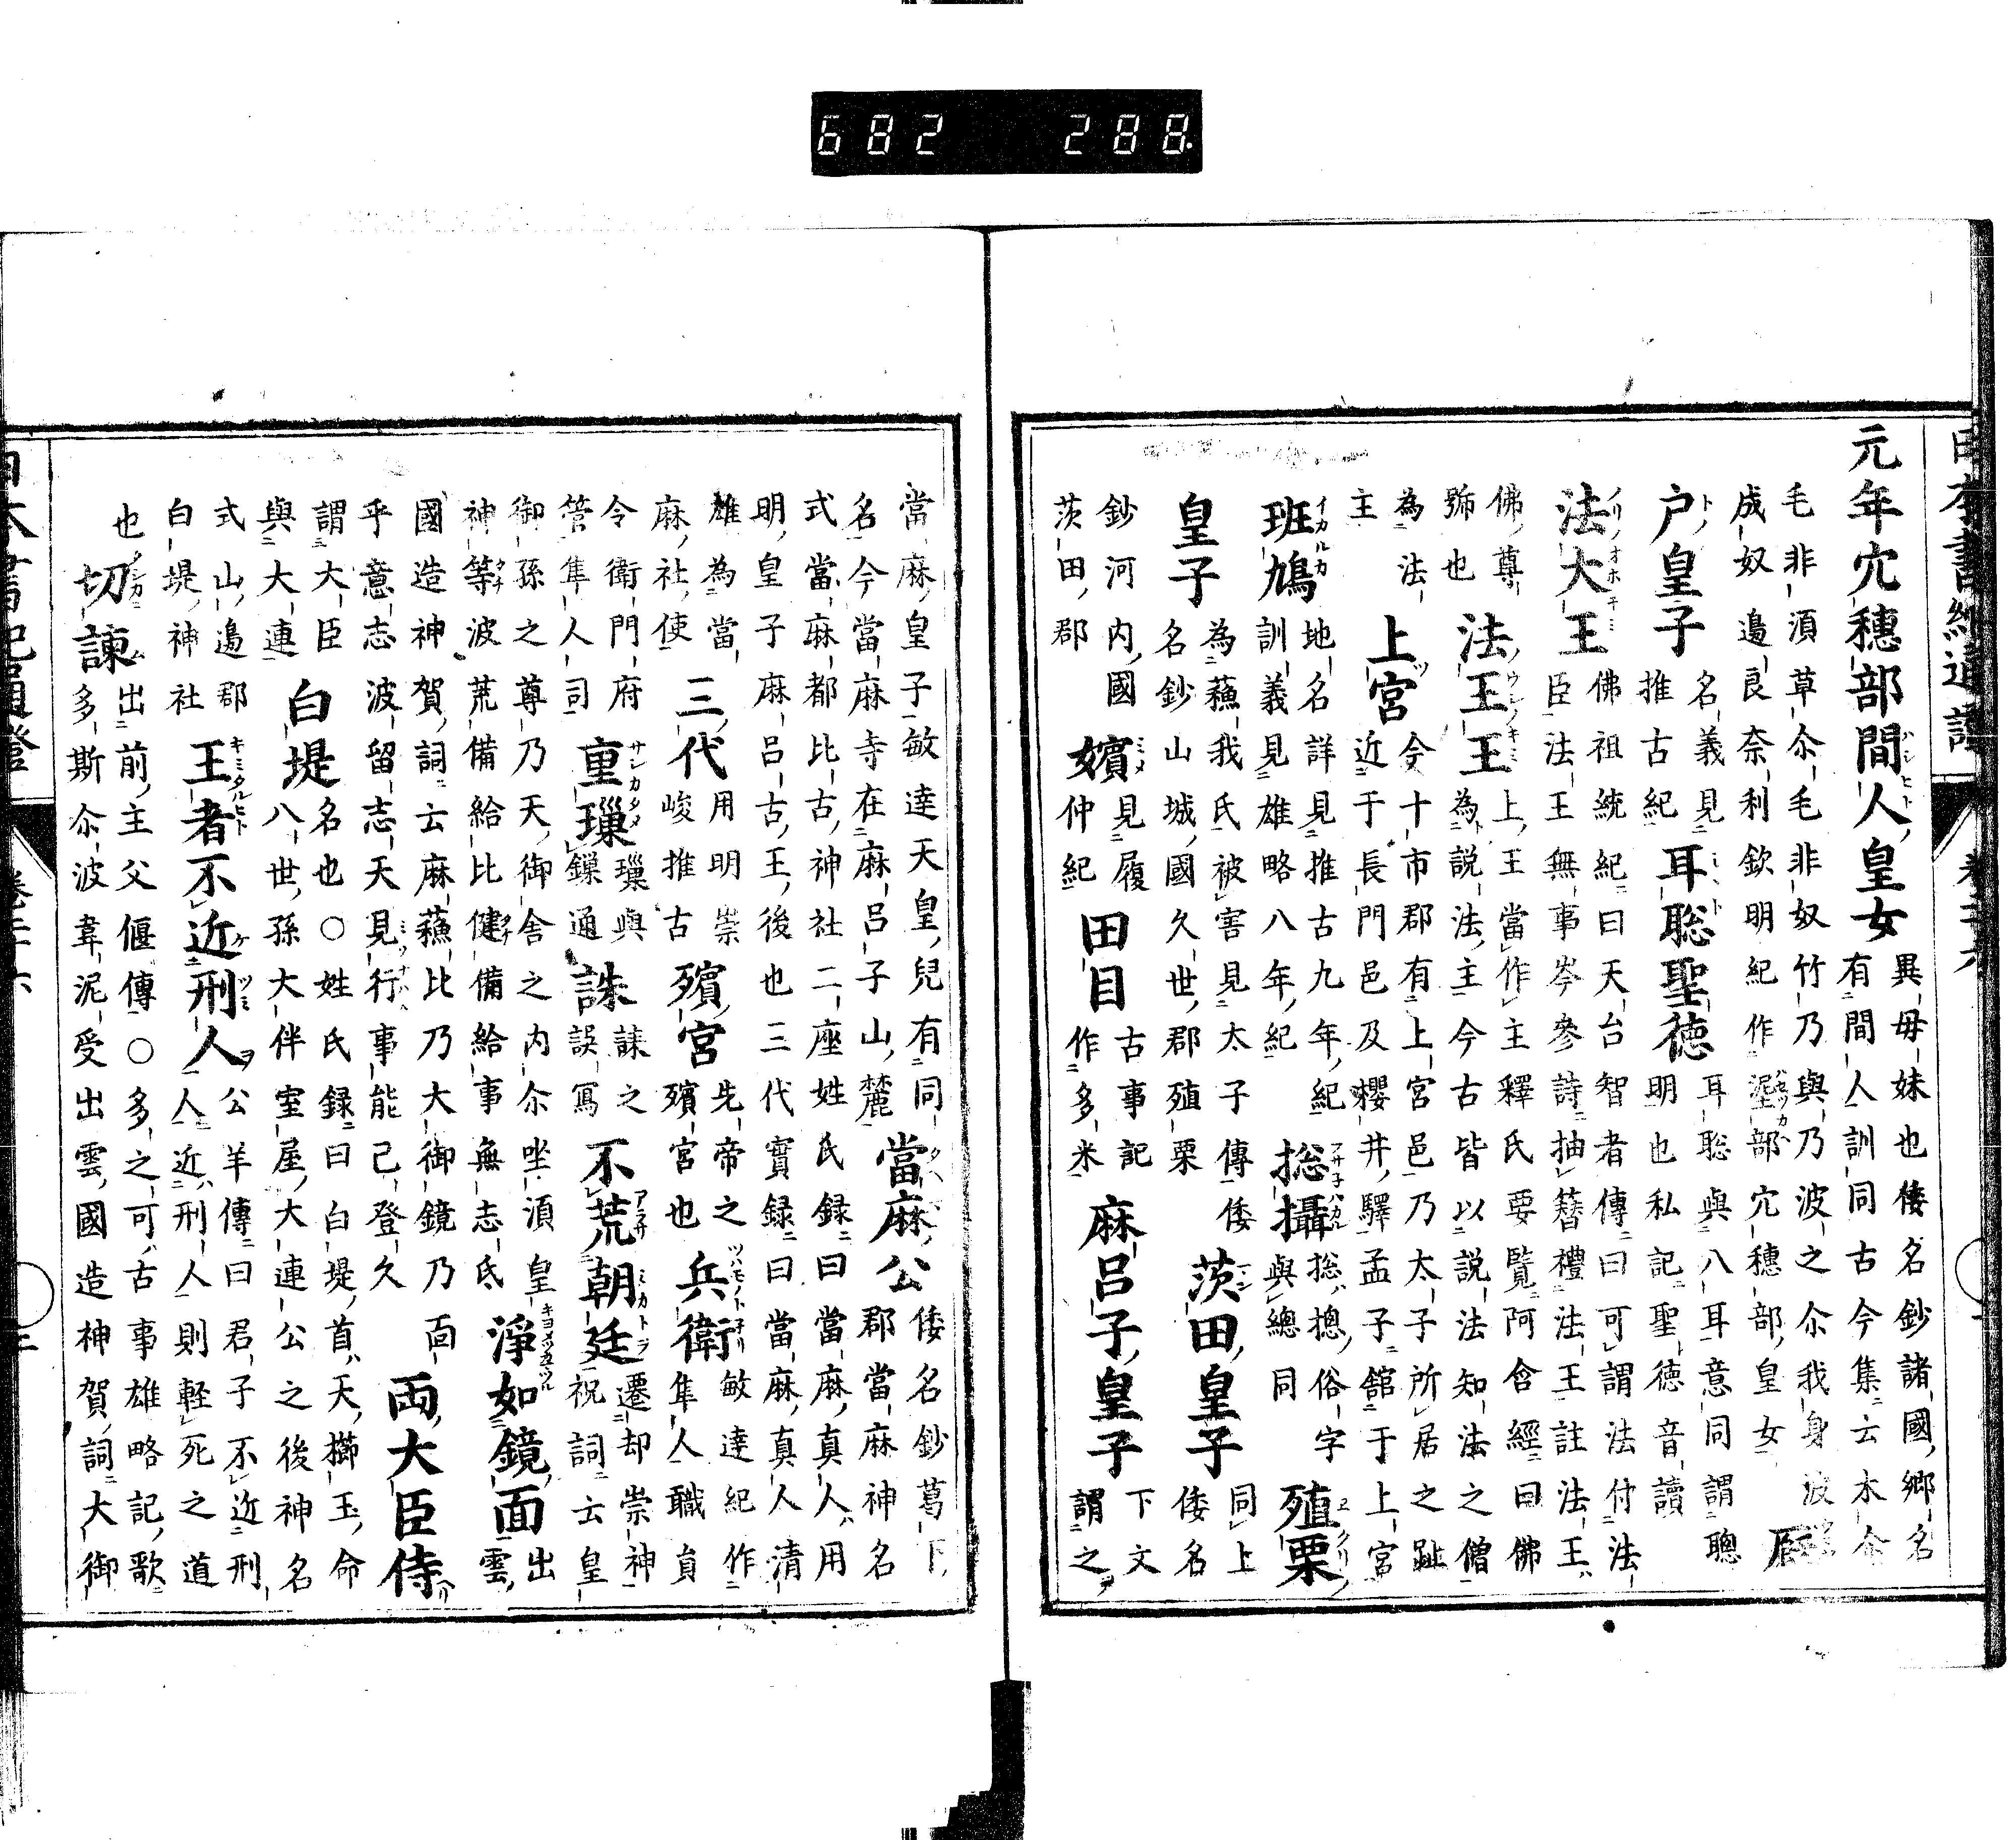 元年穴穗部間人皇女 異母妹也倭名鈔諸國鄉名
有間人訓同古今集云木佘
毛非湏草佘毛非奴竹乃與乃波之佘我身波
成奴邉良奈利欽明紀作渥部穴穗部皇女 厩
户皇子 名義見
推古紀 耳聡聖徳 耳聡與八耳意同謂聰
明也私記聖徳音讀
法大王 佛祖統紀曰天台智者傳曰可謂法付法
臣法王無事岑參詩抽簪禮法王註法王
佛尊
號也 法王王 上王當作主釋氏要覽阿含經曰佛
為說法主今古皆以說法知法之僧
為法
主 上宮 今十市郡有上宮邑乃太子所居之趾
近于長門邑及櫻井驛孟子館于上宮
班鳩 地名詳見推古九年紀
訓義見雄略八年紀 捴攝 捴摠俗字
與總同 殖栗
皇子 為蘓我氏被害見太子傳倭
名鈔山城國久世郡殖栗 茨田皇子 同上
倭名
鈔河内國
茨田郡 嬪 見履
仲紀 田目 古事記
作多米 麻呂子皇子 下文
謂之
當麻皇子敏達天皇兒有同
名今當麻寺在麻呂子山麓 當麻公 倭名鈔葛下
郡當麻神名
式當麻都比古神社二座姓氏録曰當麻真人用
明皇子麻呂古王後也三代實録曰當麻真人清
雄為當
麻社使 三代 用明崇
峻推古 殯宮 先帝之
殯宮也 兵衛 敏達紀作
隼人職貟
令衛門府
管隼人司 重璅 璅與
鏁通 誅 誄之
誤寫 不荒朝廷 遷却崇神
祝詞云皇
御孫之尊乃天御舍之内佘坐湏皇
神等波荒備給比健備給事無志氐 淨如鏡面 出
雲
國造神賀詞云麻蘓比乃大御鏡乃面
乎意志波留志天見行事能己登久 両大臣侍
謂大臣
與大連 白堤 名也○姓氏録曰白堤首天櫛玉命
八世孫大伴室屋大連公之後神名
式山邉郡
白堤神社 王者不近刑人 公羊傳曰君子不近刑
人近刑人則軽死之道
也 切諫 出前主父偃傳○多之可古事雄略記歌
多斯佘波韋泥受出雲國造神賀詞大御
日本書紀通證 卷二十六
682 288